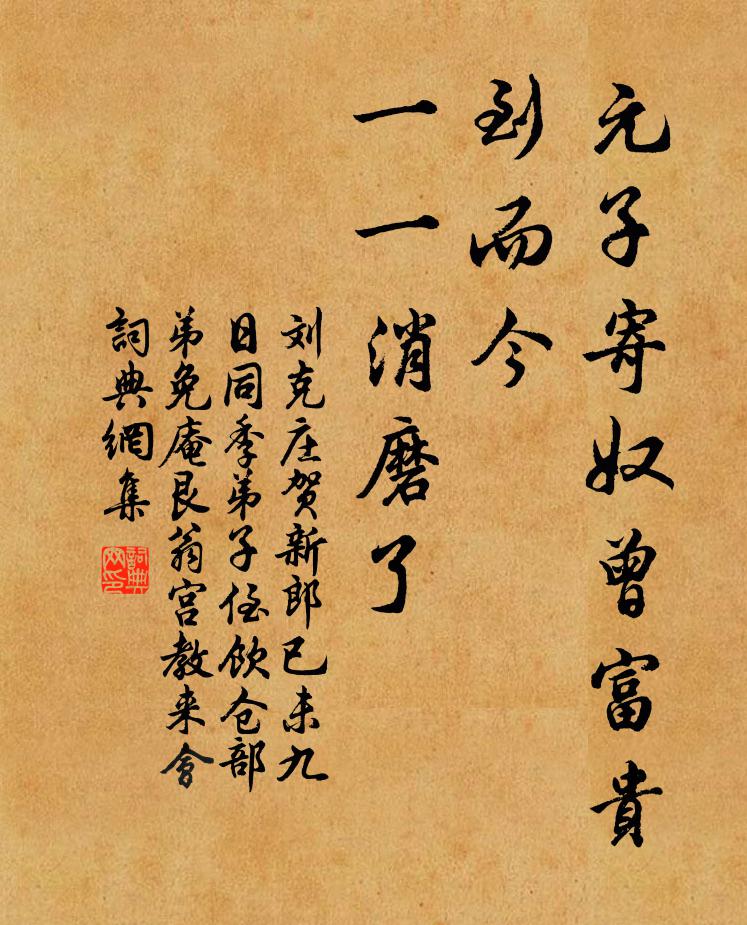 元子寄奴曾富貴
到而今
一一消磨了
刘克庄贺新郎已未九
日同季弟子侄饮仓部
弟免庵艮翁宫教来會
詞典網集
詞典網印